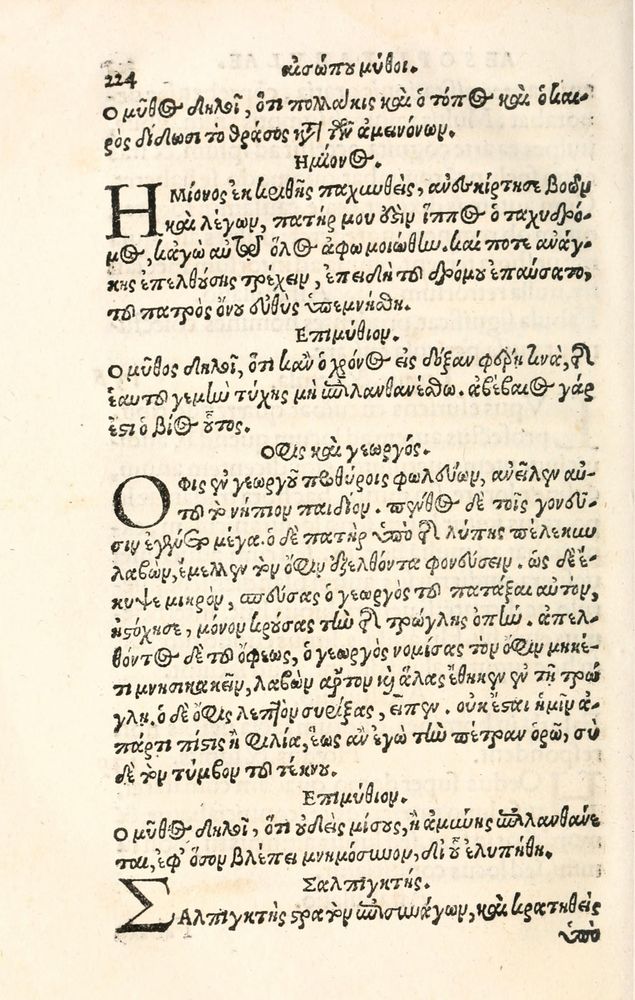 224
αἰσώπου μῦθοι.
Ο μῦθος δηλοῖ, ὅτι πολλάκις καὶ ὁ τόπος καὶ ὁ και-
ρὸς δίδωσι τὸ θράσος κατὰ τῶν ἀμεινόνων.
Ημίονος.
ΗΜίονος ἐκ κριθῆς παχυνθεὶς, ἀνεσκίρτησε βοῶν
καὶ λέγων, πατήρ μου ἐστὶν ἵππος ὁ ταχυδρό-
μος, κᾀγὼ αὐτῷ ὅλος ἀφωμοιώθην. καί ποτε ἀνάγ-
κης ἐπελθούσης τρέχειν, ἐπειδὴ τοῦ δρόμου ἐπαύσατο,
τοῦ πατρὸς ὄνου εὐθὺς ὑπεμνήσθη.
Επιμύθιον.
Ο μῦθος δηλοῖ, ὅτι κᾂν ὁ χρόνος εἰς δόξαν φέρῃ τινὰ, τῆς
ἑαυτοῦ γεμὼ τύχης μὴ ἐπιλανθανέσθω. ἀβέβαιος γάρ
ἐστι ὁ βίος οὗτος.
Οφις καὶ γεωργός.
ΟΦις ἐν γεωργοῦ προθύροις φωλεύων, ἀνεῖλεν αὐ-
τοῦ τὸ νήπιον παιδίον. πένθος δὲ τοῖς γονεῦ-
σιν ἐγένετο μέγα. ὁ δὲ πατὴρ ὑπὸ τῆς λύπης πέλεκυν
λαβὼν, ἔμελλεν τὸν ὄφιν ἐξελθόντα φονεύσειν. ὡς δὲ ἔ-
κυψε μικρὸν, σπεύσας ὁ γεωργὸς τοῦ πατάξαι αὐτὸν,
ἠστόχησε, μόνον κρούσας τὴν τῆς τρώγλης ὀπήν. ἀπελ-
θόντος δὲ τοῦ ὄφεως, ὁ γεωργὸς νομίσας τὸν ὄφιν μηκέ-
τι μνησικακεῖν, λαβὼν ἄρτον καὶ ἅλας ἔθηκεν ἐν τῇ τρώ
γλῃ. ὁ δὲ ὄφις λεπτὸν συρίξας, εἶπεν. οὐκ ἔσται ἡμῖν ἀ-
πάρτι πίστις ἢ φιλία, ἕως ἂν ἐγὼ τὴν πέτραν ὁρῶ, σὺ
δὲ τὸν τύμβον τοῦ τέκνου.
Επιμύθιον.
Ο μῦθος δηλοῖ, ὅτι οὐδεὶς μίσους, ἢ ἀμύνης ἐπιλανθάνε
ται, ἐφ᾽ ὅσον βλέπει μνημόσυνον, δι᾽ οὗ ἐλυπήθη.
Σαλπιγκτής.
ΣΑλπιγκτὴς στρατὸν ἐπισυνάγων, καὶ κρατηθεὶς
ὑπὸ